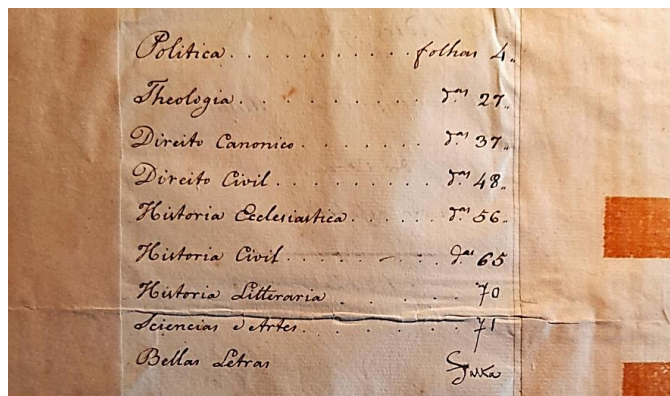 Politica . . . . . . . . . . . folhas 4,,
Theologia . . . . . . . . . d.as 27,,
Direito Canonico . . . . . . . d.as 37,,
Direito Civil . . . . . . . . d.as 48,,
Historia Ecclesiastica . . . . . d.as 56,,
Historia Civil . . . . . . . . d.as 65
Historia Litteraria . . . . . 70
Sciencias e Artes . . . . . . 71
Bellas Letras